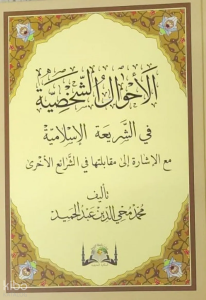 الأحوال الشخصية
في الشريعة الإسلامية
مع الإشارة إلى مقابلتها في الشرائع الأخرى
تأليف
محمد محيي الدين عبد الحميد
kibo